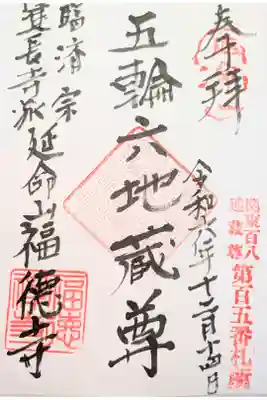 奉拝
令和六年十二月十四日
関東百八
地蔵尊
第百五番札所
五輪六地蔵尊
臨済宗
建長寺派延命山福徳寺